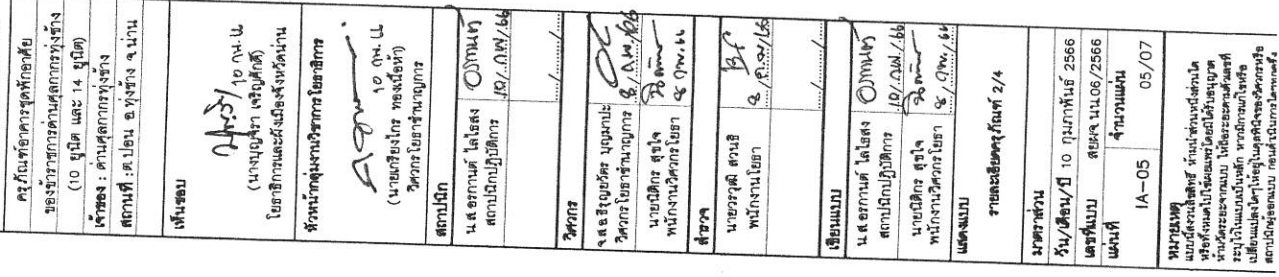 ครุภัณฑ์อาคารชุดพักอาศัย
ของข้าราชการด่านศุลกากรทุ่งช้าง
(10 ยูนิต และ 14 ยูนิต)
เจ้าของ : ด่านศุลกากรทุ่งช้าง
สถานที่ : ต.ปอน อ.ทุ่งช้าง จ.น่าน
เห็นชอบ
10 กพ. ๖๖
(นางบุญจิรา เจริญศักดิ์)
โยธาธิการและผังเมืองจังหวัดน่าน
หัวหน้ากลุ่มงานวิชาการโยธาธิการ
10 กพ. ๖๖
(นายเกรียงไกร ทองเนื้อห้า)
วิศวกรโยธาชำนาญการ
สถาปนิก
น.ส.อรกานต์ ไลไธสง
สถาปนิกปฏิบัติการ
10/ก.พ./66
วิศวกร
จ.ส.อ.ธิรุญยวัตร บุญมาปะ
วิศวกรโยธาชำนาญการ
8/ก.พ./66
นายนิติกร สุขใจ
พนักงานวิศวกรโยธา
8/กพ./66
สำรวจ
นายวรวุฒิ สวนธิ
พนักงานโยธา
เขียนแบบ
น.ส.อรกานต์ ไลไธสง
สถาปนิกปฏิบัติการ
10/ก.พ./66
นายนิติกร สุขใจ
พนักงานวิศวกรโยธา
8/กพ./66
แสดงแบบ
รายละเอียดครุภัณฑ์ 2/4
มาตราส่วน
วัน/เดือน/ปี 10 กุมภาพันธ์ 2566
เลขที่แบบ สยผจ.นน.06/2566
แผ่นที่ จำนวนแผ่น
IA-05 05/07
หมายเหตุ
แบบนี้สงวนลิขสิทธิ์ ห้ามนำส่วนหนึ่งส่วนใด
หรือทั้งหมดไปใช้เผยแพร่โดยมิได้รับอนุญาต
ห้ามวัดระยะจากแบบ ให้ถือระยะตามตัวเลขที่
ระบุไว้ในแบบเป็นหลัก หากมีการแก้ไขหรือ
เปลี่ยนแปลงใดๆให้อยู่ในดุลพินิจของวิศวกรหรือ
สถาปนิกผู้ออกแบบ ก่อนดำเนินการใดๆทุกครั้ง